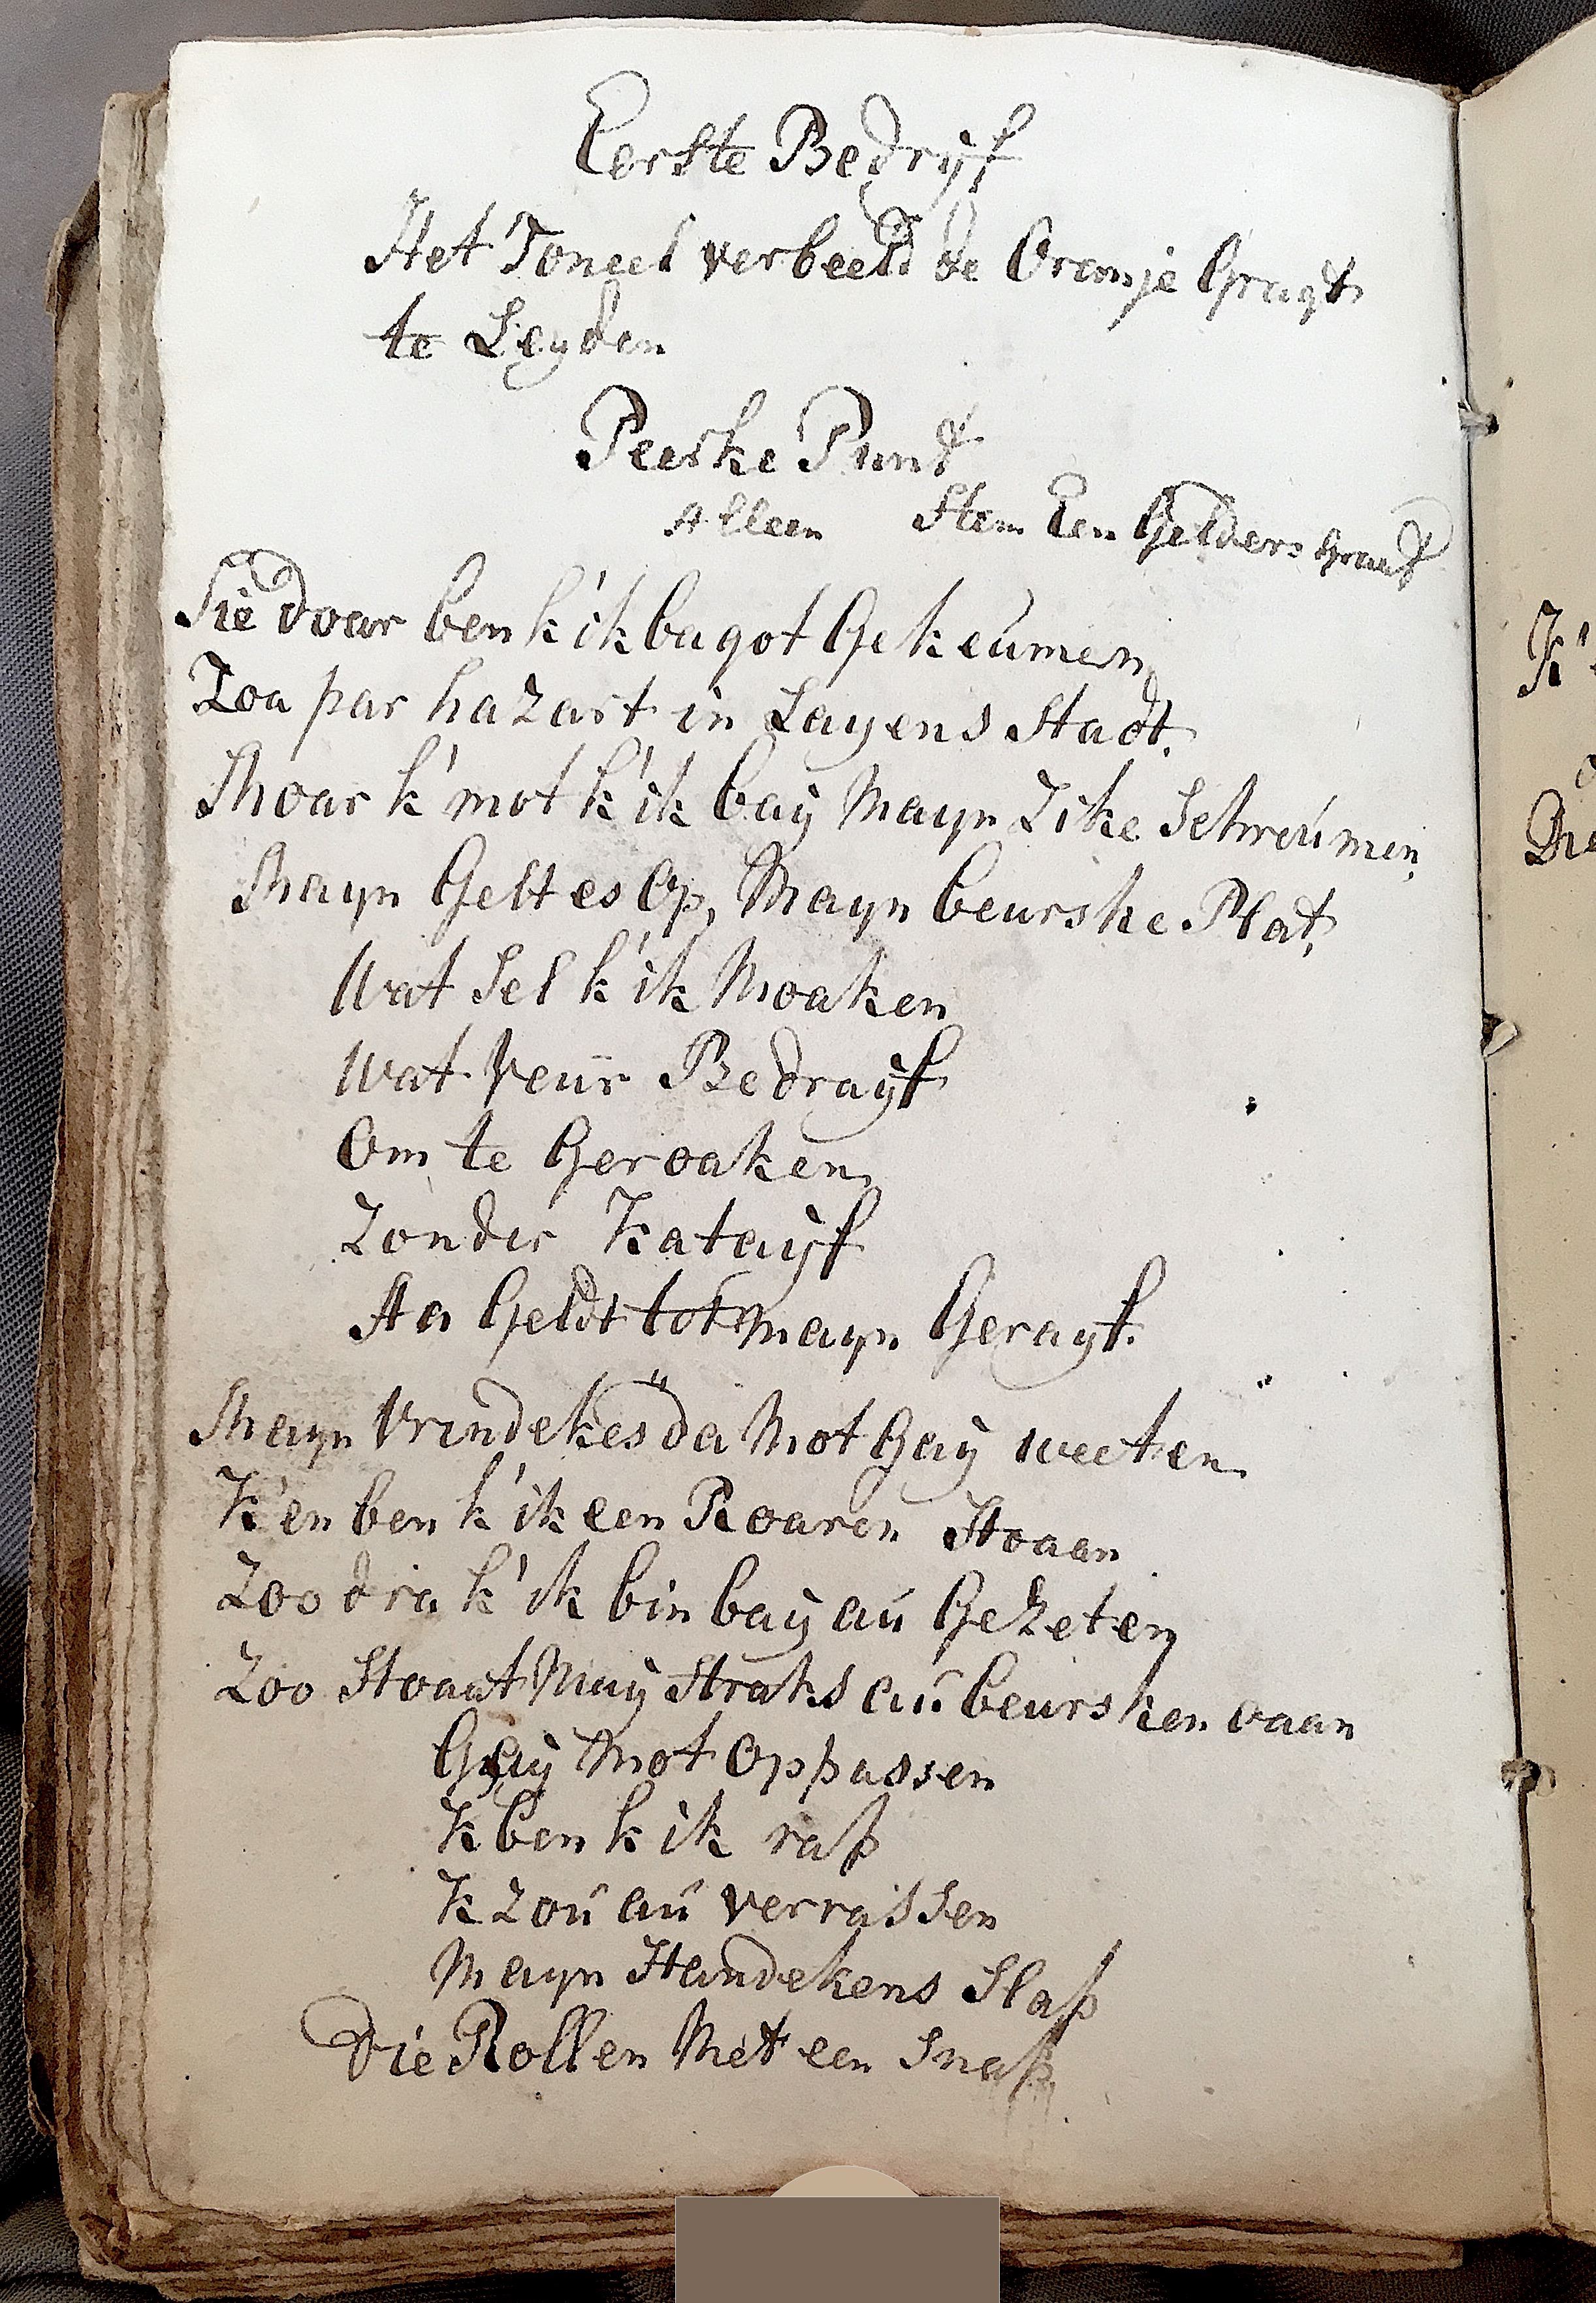 Eerste Bedryf
Het Toneel verbeeld de Oranje Gragt
te Leyden
Peerke Punt
Alleen Stem Een Gelders Graaf
Sie doar ben k'ik bagot Gekeúmen
Zoa par hazart in Layens Stadt.
Moar k'mot k'ik baÿ Mayn Zike Schreúmen
Mayn Gelt es Op, Mayn beurske Plat,
Wat Sel k'ik Moaken
Wat Veür Bedraÿf
Om te Geroaken
Zonder Kataÿf
Aa Geldt tot mayn Gerayf.
Mayn Vrindekes da Mot Gaÿ weeten
K'en ben k'ik een Roaren Hoaan
Zoo dra k'ik bin baÿ aú Gezeten
Zoo Stoaat Maÿ Straks aú beursken oaan
Gaÿ Mot Oppassen
K ben k ik raß
K zoú aú verrassen
Mayn Handekens Slaß
Die Rollen Met een Snaß
K'
Die